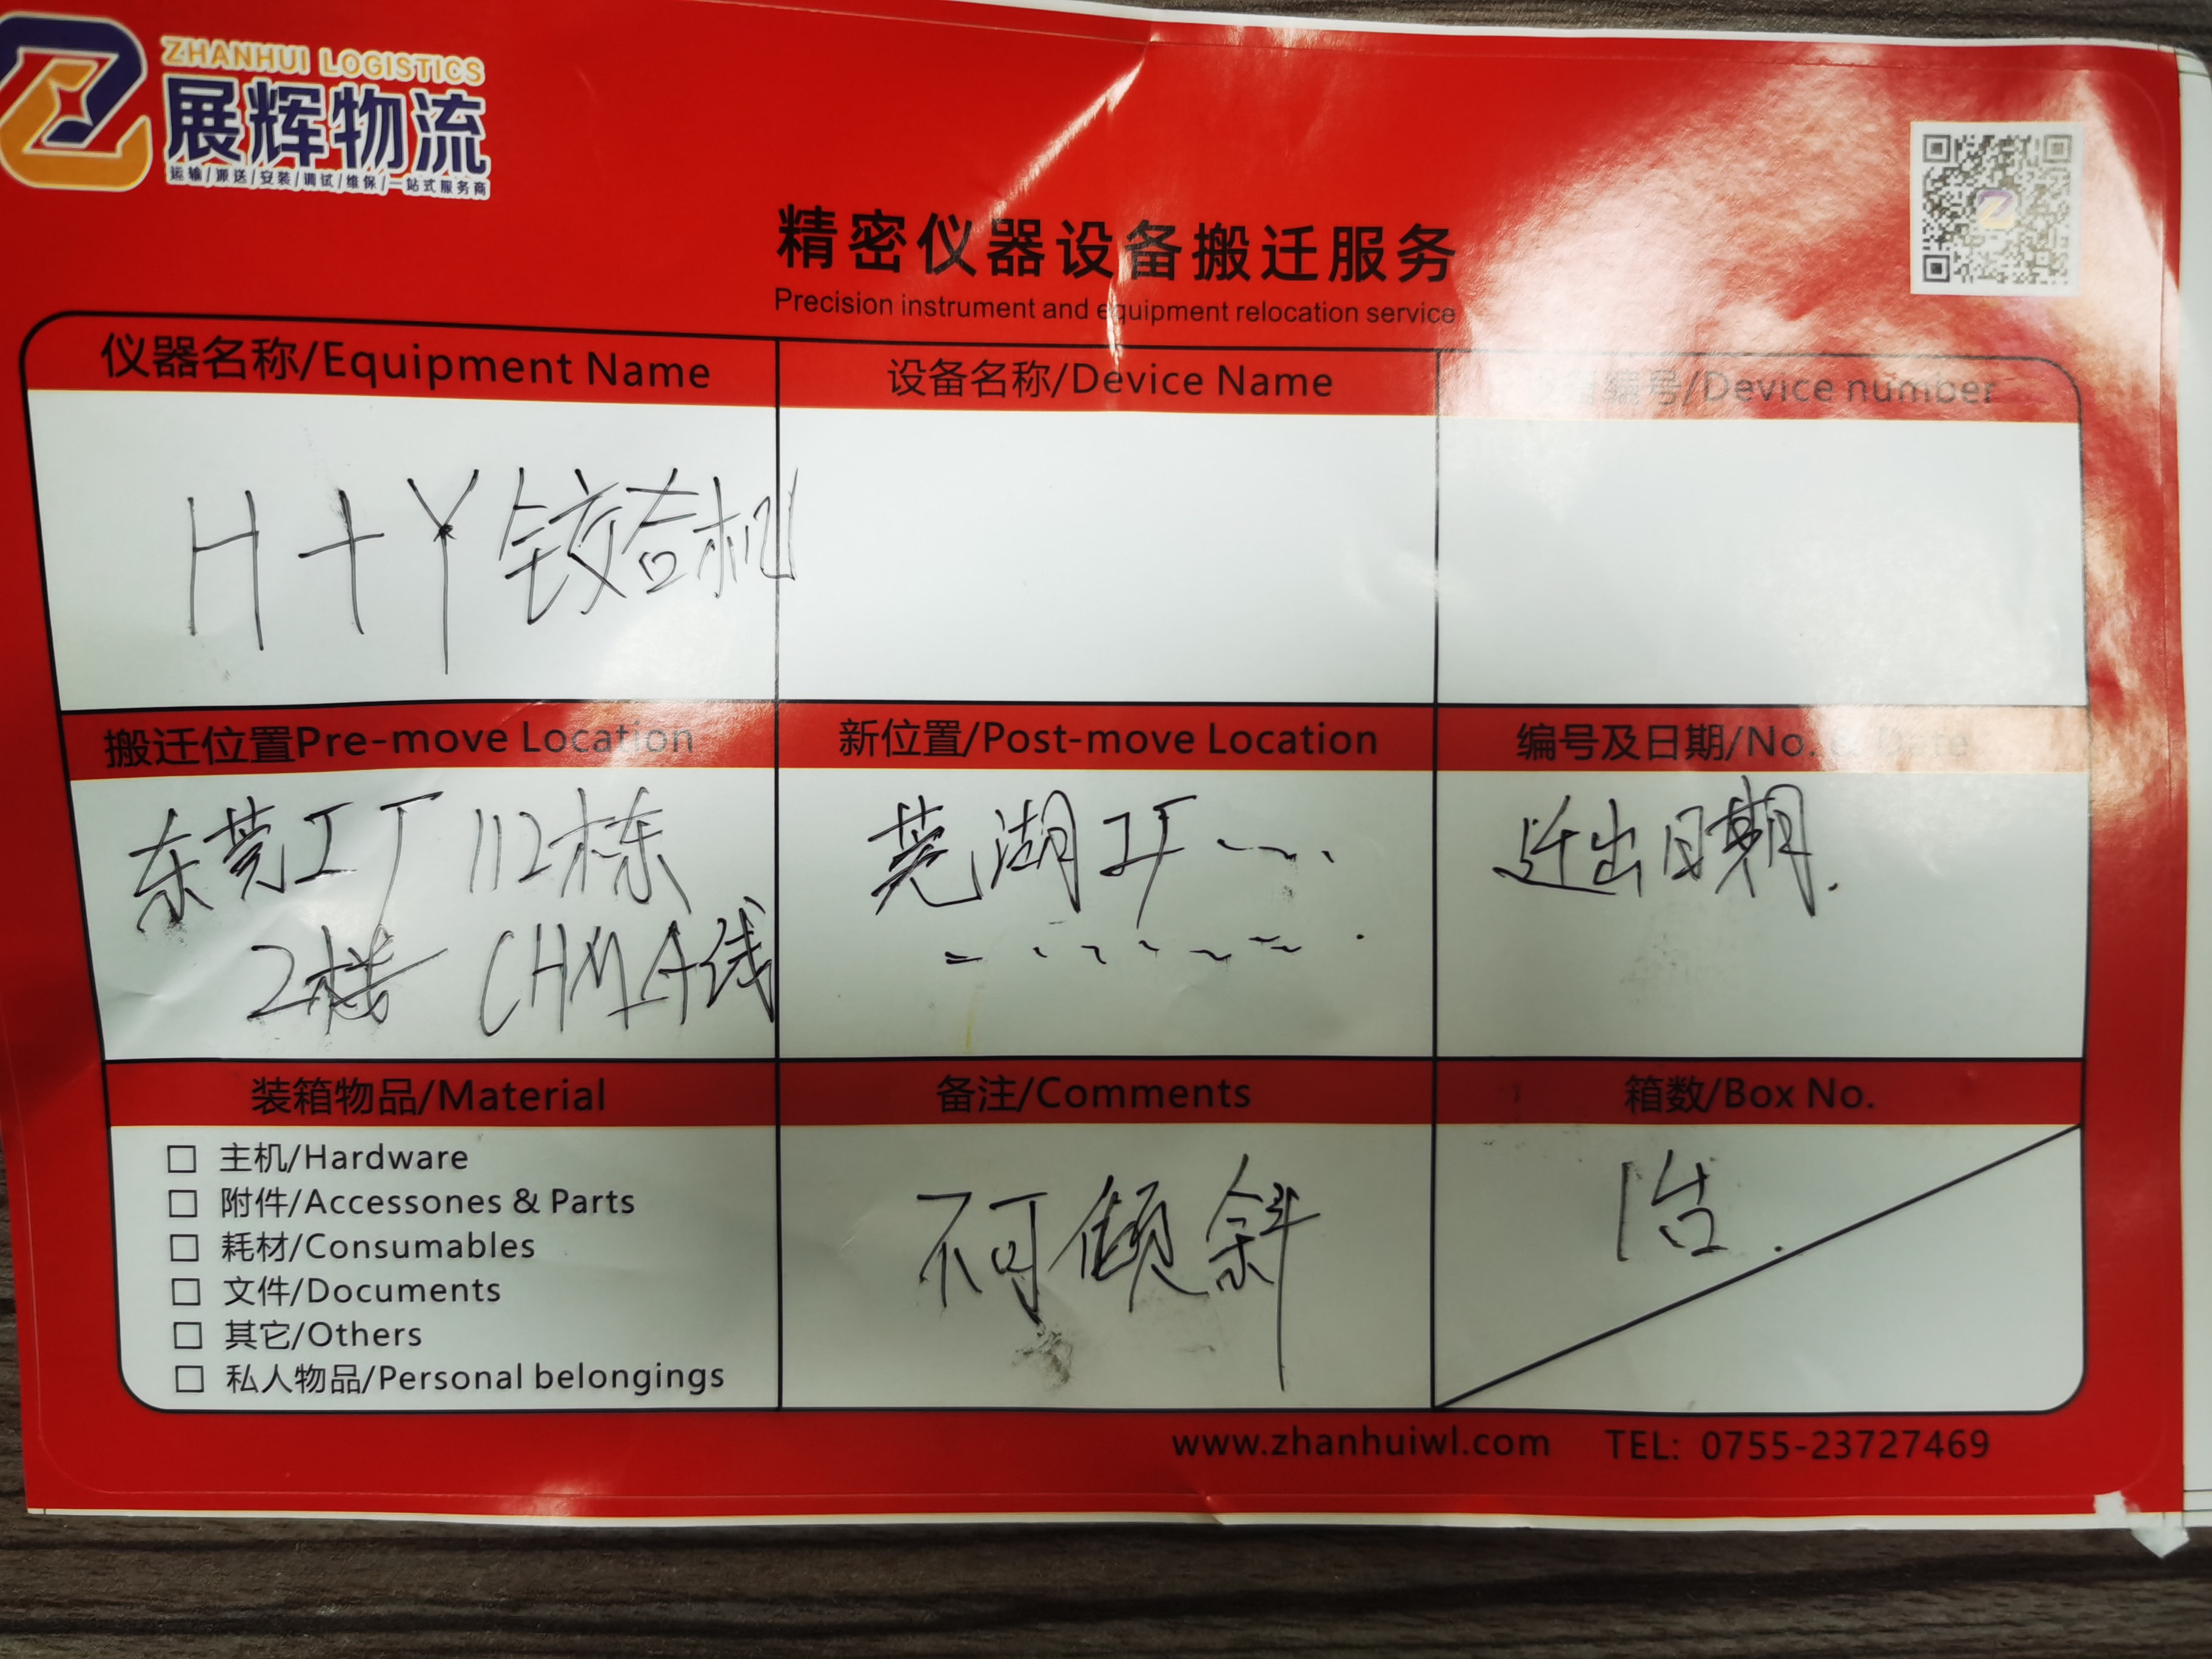 ZHANHUI LOGISTICS
展辉物流
运输/派送/安装/调试/维保/一站式服务商
精密仪器设备搬迁服务
Precision instrument and equipment relocation service
仪器名称/Equipment Name
设备名称/Device Name
编号/Device number
H+Y铰合机
搬迁位置Pre-move Location
新位置/Post-move Location
编号及日期/No. & Date
东莞工厂112栋
2楼 CHMA线
芜湖工厂
迁出日期.
装箱物品/Material
备注/Comments
箱数/Box No.
□ 主机/Hardware
□ 附件/Accessones & Parts
□ 耗材/Consumables
□ 文件/Documents
□ 其它/Others
□ 私人物品/Personal belongings
不可倾斜
1台.
www.zhanhuiwl.com TEL: 0755-23727469